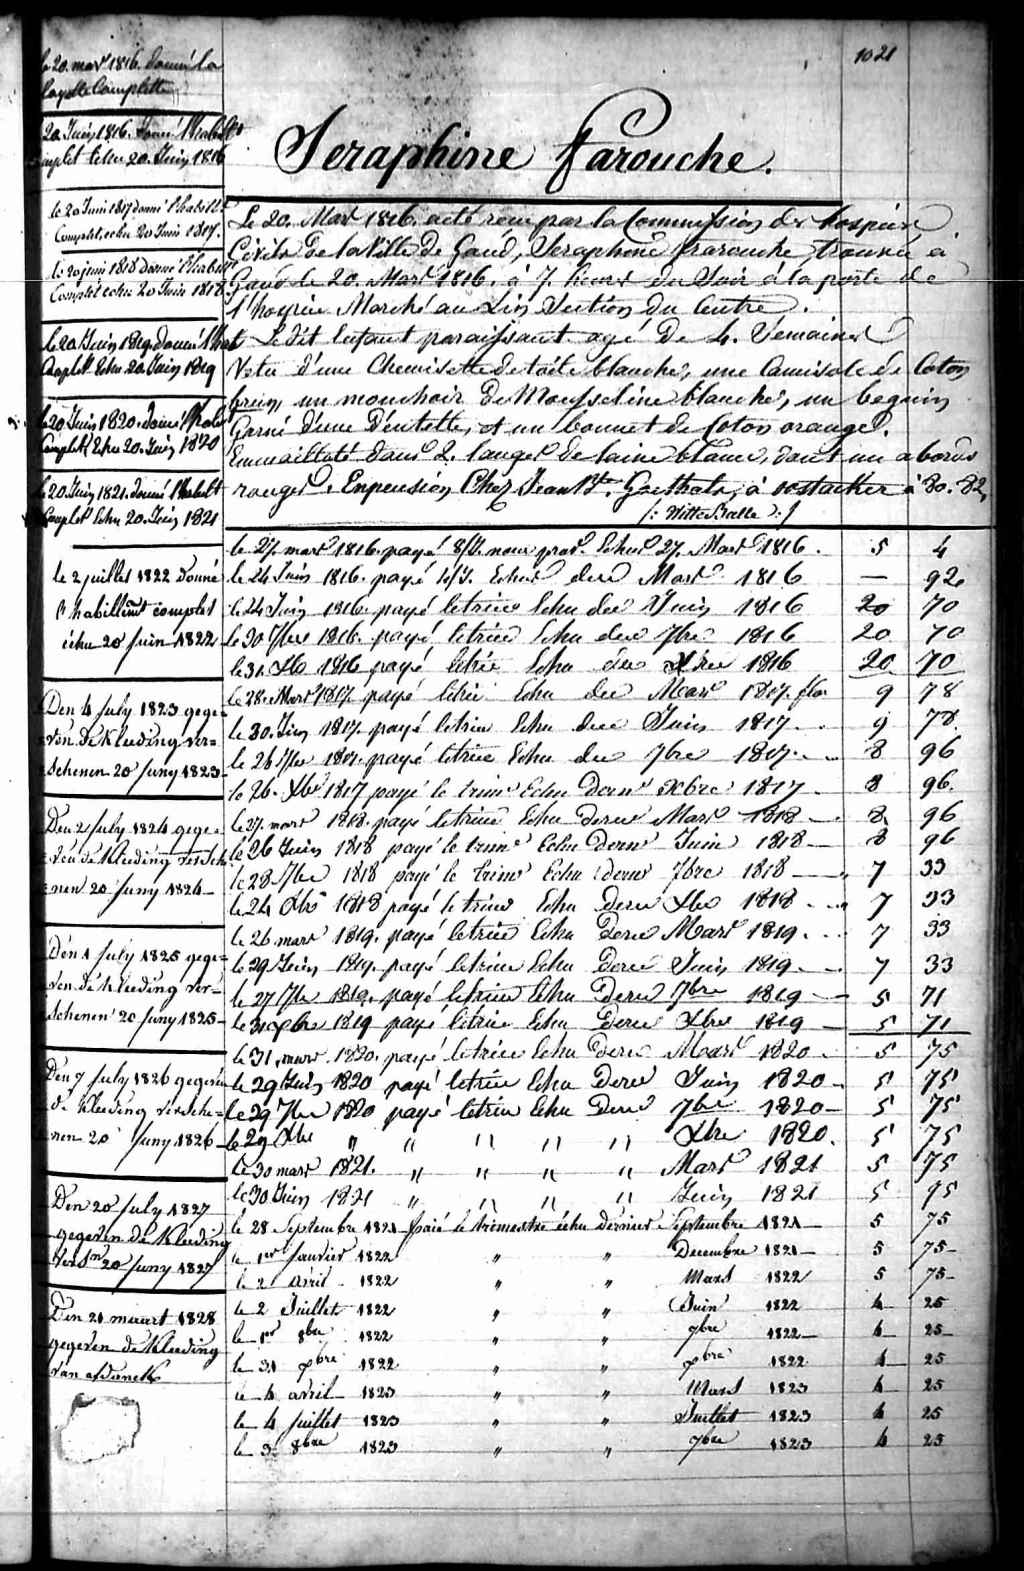 1021
le 20. mars 1816. donné la
layette Complette
20 Juin 1816. donné l'habillt
complet Echu 20. Juin 1816
le 20 Juin 1817 donné l'habillt.
Complet, echu 20 Juin 1817.
le 20 juin 1818 donné l'habillt
Complet echu 20 Juin 1818
le 20 Juin 1819. donné l'habt
Complet Echu 20. Juin 1819
le 20 Juin 1820. donné l'habt
Complet Echu 20. Juin 1820
le 20 Juin 1821. donné l'habillt
Complet Echu 20. Juin 1821
le 2 juillet 1822 donné
l'habillemt complet
échu 20 juin 1822
Den 4 july 1823 gege-
ven de Kleeding ver-
schenen 20 juny 1823-
Den 2 july 1824 gege-
ven de Kleeding versche-
nen 20 juny 1824-
Den 1 july 1825 gege-
ven de Kleeding ver-
schenen 20 juny 1825-
Den 7 july 1826 gegeven
de Kleeding versche-
nen 20 juny 1826-
Den 20 july 1827
gegeven de Kleeding
versn 20 juny 1827
Den 21 maart 1828
gegeven de Kleeding
van
Seraphine Farouche.
Le 20. Mars 1816. acté reçu par la Commission des hospices
Civils de la Ville de Gand, Seraphine Farouche, trouvée à
Gand le 20. Mars 1816. à 7. heures du Soir à la porte de
l'hospice Marché au Lin Section du Centre.
Le dit Enfant paraissant agé De 4. Semaines
Vetu d'une Chemisette de toile blanche, une Camisole de Coton
brun, un mouchoir De Mousseline blanche, un beguin
Garni d'une Dentelle, et un bonnet de Coton orange.
Emmailloté dans 2. langes de laine blanc, dont un a bords
rouges. Enpension Chez Jean Bt. Goethals, à oostacker à 80. 82,
/: Witte Balle :/
le 27. mars 1816. payé 8/U. nour prov. Echus 27. Mars 1816. 5 4
le 24 Juin 1816. payé Echus deru Mars 1816 — 92
le 24 Juin 1816. payé letrim Echu der Juin 1816 20 70
le 30 7bre 1816. payé letrim Echu der 7bre 1816 20 70
le 31 Xbre 1816 payé letrim Echu der Xbre 1816 20 70
le 28. Mars 1817. payé letrim Echu der Mars 1817. flor 9 78
le 30. Juin 1817. payé letrim Echu der Juin 1817 . . 9 78
le 26 7bre 1817. payé letrim Echu der 7bre 1817. . . 8 96
le 26. Xbre 1817 payé le trime Echu Dern Xbre 1817 . 8 96.
le 27. mars 1818. payé letrim Echu derne Mars 1818 — 8 96
le 26 Juin 1818 payé le trime Echu Dern Juin 1818 — 8 96
le 28 7bre 1818 payé le trime Echu Derne 7bre 1818 — 7 33
le 24 Xbre 1818 payé letrim Echu Derne Xbre 1818 . . 7 33
le 26 mars 1819. payé letrim Echu Derne Mars 1819 . . 7 33
le 29 Juin 1819. payé letrim Echu Derne Juin 1819 . . 7 33
le 27 7bre 1819. payé letrim Echu Derne 7bre 1819 — 5 71
le 31 Xbre 1819 payé letrim Echu Derne Xbre 1819 — 5 71
le 31 mars 1820. payé letrim Echu Derne Mars 1820 . 5 75
le 29 Juin 1820 payé letrim Echu Derne Juin 1820 . 5 75
le 29 7bre 1820 payé letrim Echu Derne 7bre 1820 — 5 75
le 29 Xbre " " " " " Xbre 1820. 5 75
le 30 mars 1821. " " " " Mars 1821 5 75
le 30 Juin 1821 " " " " Juin 1821 5 95
le 28 Septembre 1821 paié le trimestre échu dernier Septembre 1821 — 5 75
le 1er janvier 1822 " " Decembre 1821 — 5 75-
le 2 avril 1822 " " Mars 1822 5 75-
le 2 Juillet 1822 " " Juin 1822 4 25
le 1er 8bre 1822 " " 7bre 1822 — 4 25-
le 31 xbre 1822 " " xbre 1822 4 25
le 4 avril 1823 " " Mars 1823 4 25
le 4 juillet 1823 " " Juillet 1823 4 25
le 3 8bre 1823 " " 7bre 1823 4 25